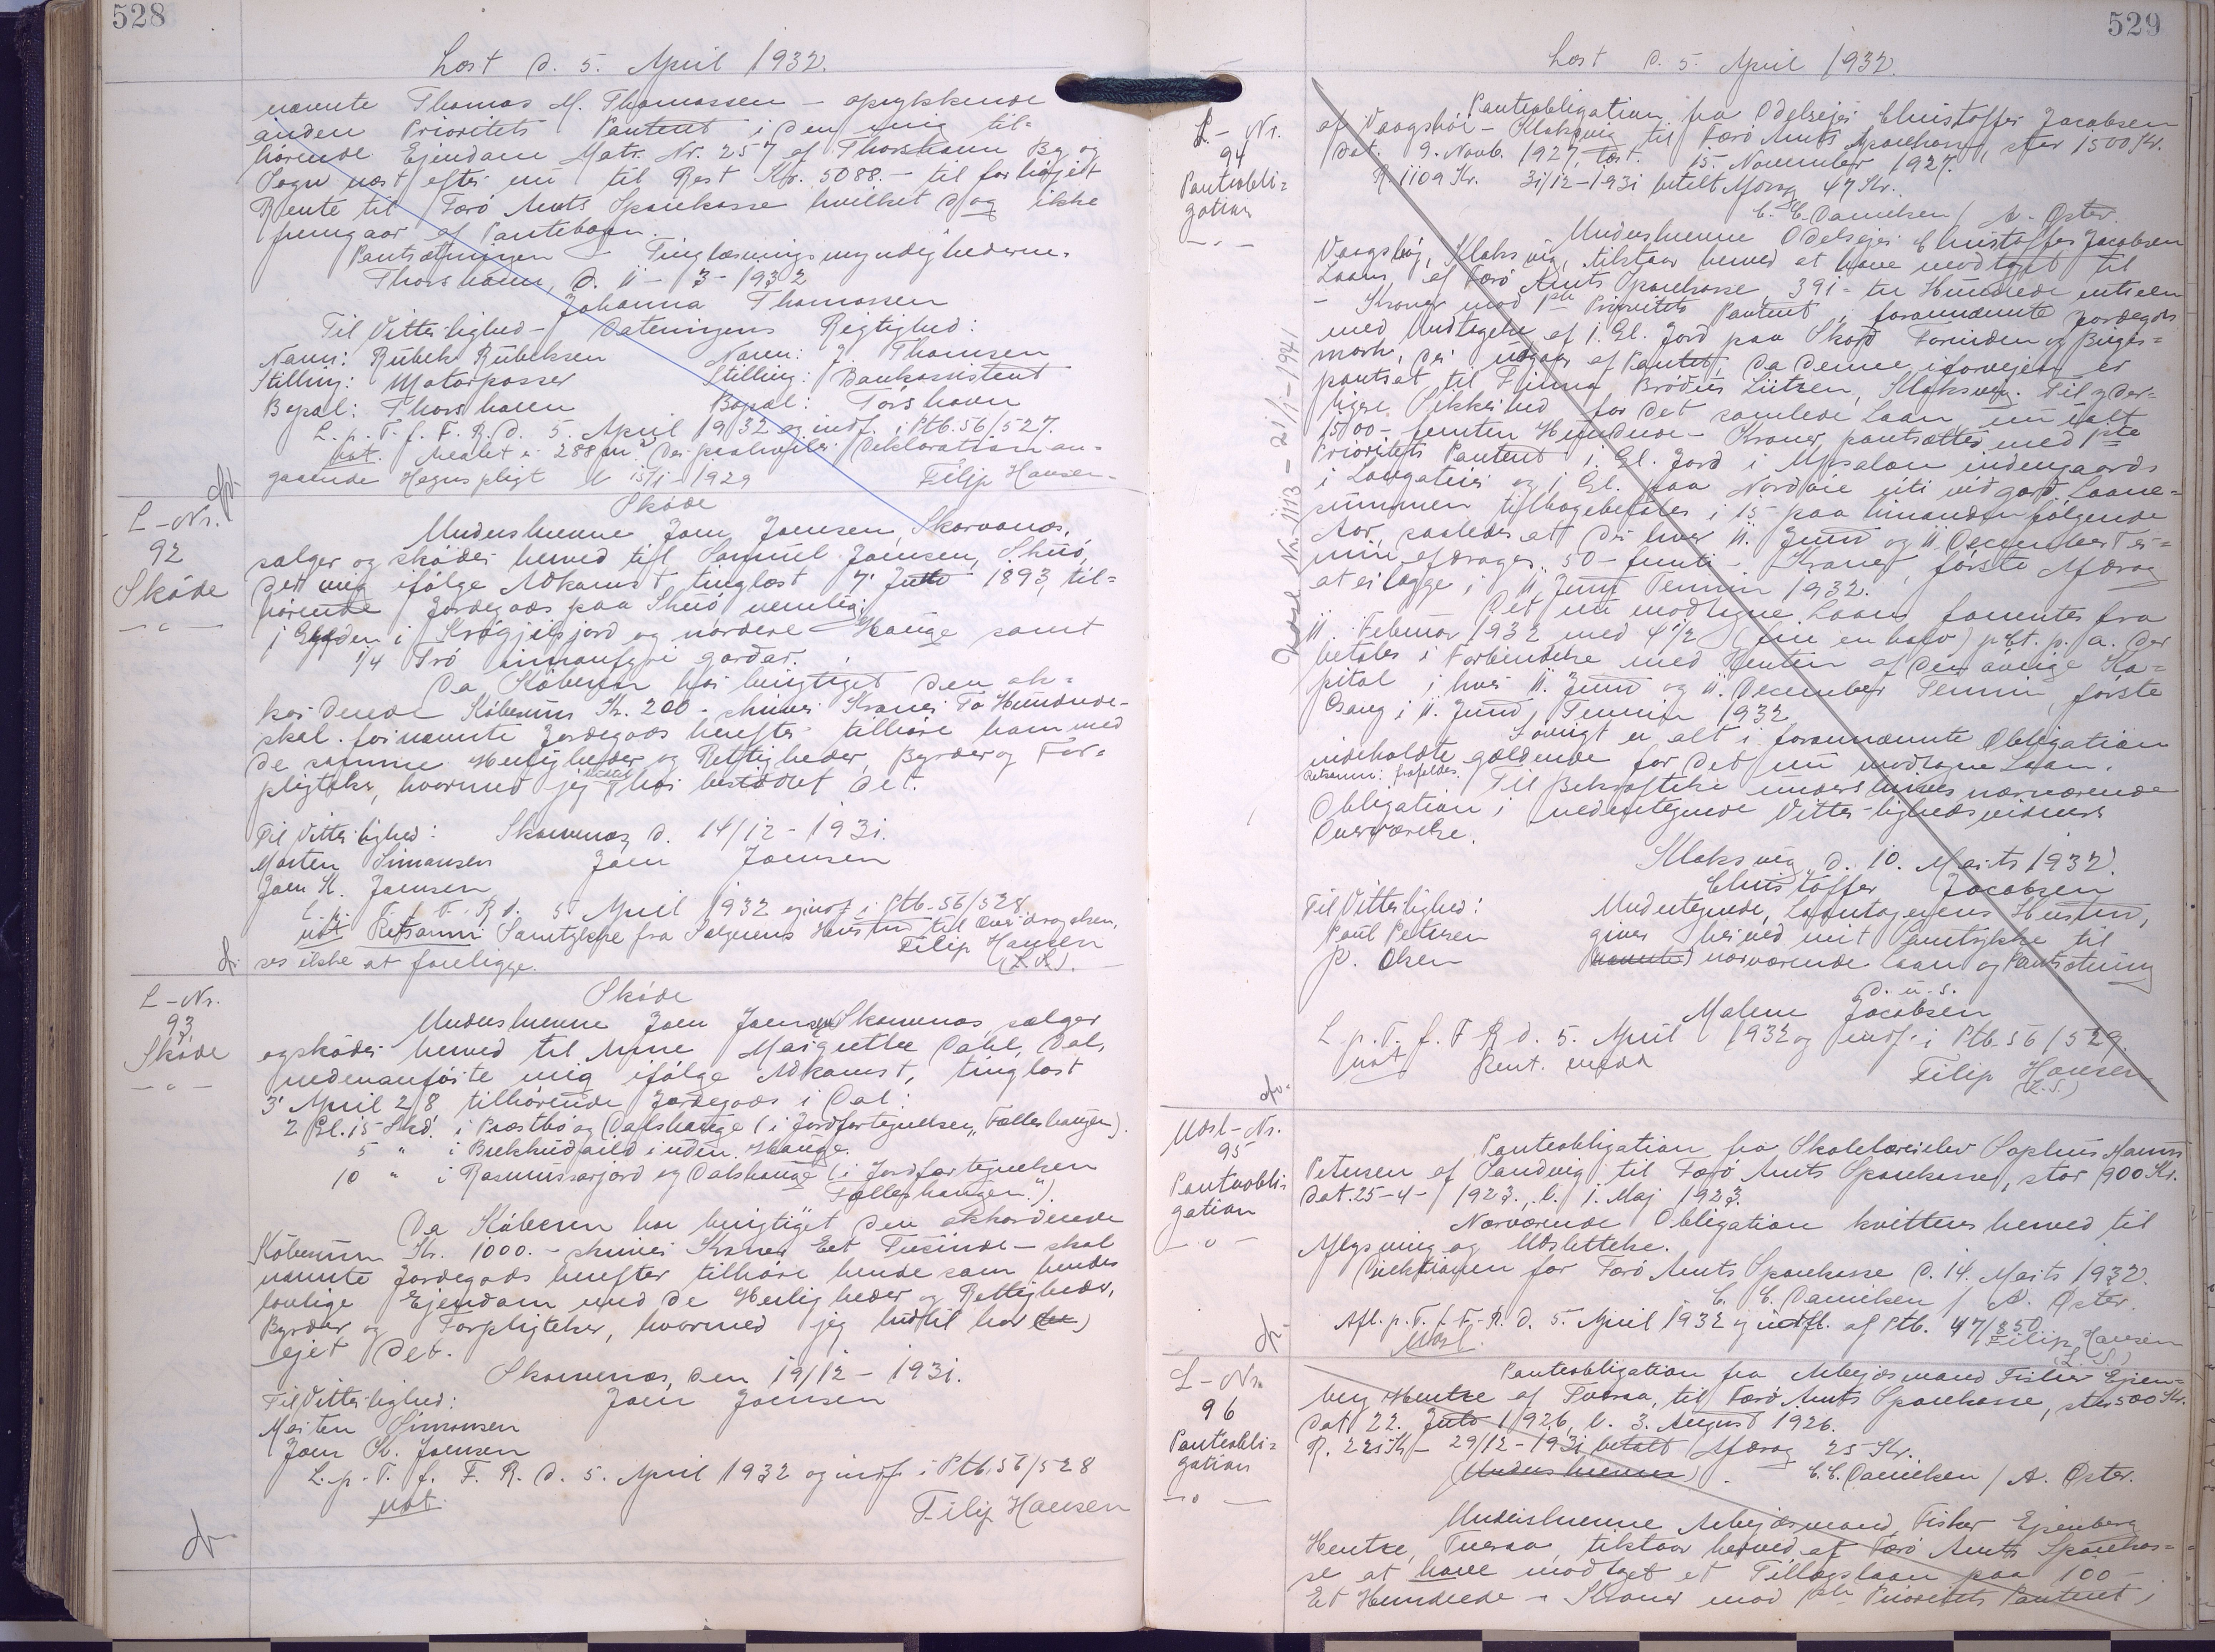 528
Læst d. 5. April 1932.
nævnte Thomas M. Thomassen – oprykkende
anden Prioritets Panteret i den mig til=
hørende Ejendom Matr. Nr. 257 af Thorshavn By og
Sogn næst efter nu til Rest Kr. 5088.– til forhöjelt
Rente til Færö Amts Sparekasse hvilket dog ikke
fremgaar af Pantebogen.
Pantsætningen – Tinglæsningsmyndighederne.
Thorshavn, d. 11 – 3 – 1932
Johanna Thomassen
Til Vitterlighed – Dateringens Rigtighed:
Navn: Rubek Rubeksen Navn: J. Thomsen
Stilling: Motorpasser Stilling: Bankassistent
Bopæl: Thorshavn Bopæl: Tórshavn
L. p. T. f. F. R. d. 5. April 1932 og indf. i Ptb. 56/527.
not. Arealet er 288 m². Der paahviler Deklaration an=
gaaende Hegnspligt l. 15/1 – 1929 Filip Hansen
L – Nr.
92
Sköde
Sköde
Underskrevne Joen Joensen, Skarvanæs,
sælger og sköder herved til Samuel Joensen, Skuö,
det mig ifölge Adkomst, tinglæst 7' Juli 1893, til=
hörende Jordegods paa Skuö nemlig:
1 Gylden i Krógjilsjord og nordere Hauge samt
1/4 Tró innanfyri gardar.
Da Köberen har berigtiget den ak=
korderede Köbesum Kr. 200 – skriver Kroner To Hundrede –
skal fornævnte Jordegods herefter tilhöre ham med
de samme Herligheder og Rettigheder, Byrder og For=
pligtelser, hvormed jeg har besiddet det.
Til Vitterlighed: Skarvanæs d. 14/12 – 1931.
Morten Simonsen Joen Joensen
Joen K. Joensen
L. p. T. f. F. R. d. 5. April 1932 og indf. i Ptb. 56/528
not. Retsanm: Samtykke fra Sælgerens Hustru til Overdragelsen,
ses ikke at foreligge. Filip Hansen
(L.S.)
L – Nr.
93
Sköde
Sköde
Underskrevne Joen Joensen Skarvanæs sælger
og sköder herved til Anne Margrethe Dahl, Dal,
nedenanförte mig ifölge Adkomst, tinglæst
3' April 28 tilhörende Jordegods i Dal:
2 Gl. 15 Skd. i Præstbø og Dalshauge (i Jordfortegnelsen „Fælleshaugen“).
5 " i Brekkudeild i uden. Hauge.
10 " i Rasmussarjord og Dalshauge (i Jordfortegnelsen
Fælleshaugen“).
Da Köberen har berigtiget den akkorderede
Köbesum Kr. 1000.– skriver Kroner Eet Tusinde – skal
nævnte Jordegods herefter tilhöre hende som hendes
lovlige Ejendom med de Herligheder og Rettigheder,
Byrder og Forpligtelser, hvormed jeg hidtil har
ejet det.
Skarvanæs, den 19/12 – 1931.
Til Vitterlighed: Joen Joensen
Morten Simonsen
Joen K. Joensen
L. p. T. f. F. R. d. 5. April 1932 og indf. i Ptb. 56/528
not. Filip Hansen
529
Læst d. 5. April 1932.
L – Nr.
94
Panteobli=
gation
Panteobligation fra Odelsejer Christoffer Jacobsen
af Vaagshöi – Klaksvig til Færö Amts Sparekasse, stor 1500 Kr.
dat. 9. Novb. 1927, læst. 15. November 1927.
R. 1109 Kr. 31/12 – 1931 betalt Afdrag 47 Kr.
C. C. Danielsen / A. Öster.
Underskrevne Odelsejer Christoffer Jacobsen
Vaagshöj, Klaksvig, tilstaar herved at have modtaget til
Laans af Færö Amts Sparekasse 391 – tre Hundrede
– Kroner mod 1ste Prioritets Panteret i forannævnte Jordegods
med Undtagelse af 1 Gl. Jord paa Skard Forinden og Bugar=
mark, der udgaar af Pantet, da denne iforvejen er
pantsat til Firma Brödrene Lützen, Klaksvig. Til yder=
ligere Sikkerhed for det samlede Laan nu ialt
1500 – femten Hundrede – Kroner pantsættes med 1ste
Prioritets Panteret 1 Gl. Jord i indengaards
i og 1 Gl. paa úti við gard. Laane=
summen tilbagebetales i 15 paa hinanden fölgende
Aar, saaledes at der hver 11. Juni og 11. December Ter=
min afdrages 50 – femti – Kroner, förste Afdrag
at erlægge i 11. Juni Termin 1932.
Det nu modtagne Laan forrentes fra
11. Februar 1932 med 4 1/2 (fire en halv) pCt. p. a. der
betales i Forbindelse med Renten af den övrige Ka=
pital i hver 11. Juni og 11. December Termin, förste
Gang i 11. Juni Termin 1932.
Iövrigt er alt i forannævnte Obligation
indeholdte gældende for det nu modtagne Laan.
Til Bekræftelse underskrives nærværende
Obligation i undertegnede Vitterlighedsvidners
Overværelse.
Klaksvig, d. 10. Marts 1932.
Christoffer Jacobsen
Til Vitterlighed: Undertegnede, Laantagerens Hustru,
Poul Petersen giver herved mit Samtykke til
P. Olsen nærværende Laan og Pantsætning
d. u. s.
Malene Jacobsen
L. p. T. f. F. R. d. 5. April 1932 og indf. i Ptb. 56/529.
not
Filip Hansen
(L.S.)
Udsl. Nr. 1113 – 21/1 – 1941
Udsl – Nr.
95
Panteobli=
gation
Panteobligation fra Skolelærerelev Sophus Hanus
Petersen af Sandvig til Færö Amts Sparekasse, stor 900 Kr.
dat. 25 – 4 – 1923., l. 1. Maj 1923.
Nærværende Obligation kvitteres herved til
Aflysning og Udslettelse.
Direktionen for Færö Amts Sparekasse d. 14. Marts 1932.
C. C. Danielsen / A. Öster.
Afl. p. T. f. F. R. d. 5. April 1932 og udsl. af Ptb. 47/850
Udsl. Filip Hansen
L.S.
L – Nr.
96
Panteobli=
gation
Panteobligation fra Arbejdsmand Fisker Ejen=
berg Hentze af Tveraa, til Færö Amts Sparekasse, stor 500 Kr.
dat 22. Juli 1926, l. 3. August 1926.
R. 225 Kr – 29/12 – 1931 betalt Afdrag 25 Kr.
(Underskrevne) C. C. Danielsen / A. Öster.
Underskrevne Arbejdsmand, Fisker Ejenberg
Hentze, Tveraa, tilstaar herved af Færö Amts Sparekas=
se at have modtaget et Tillægslaan paa 100 –
Et Hundrede – Kroner mod 1ste Prioritets Panteret i